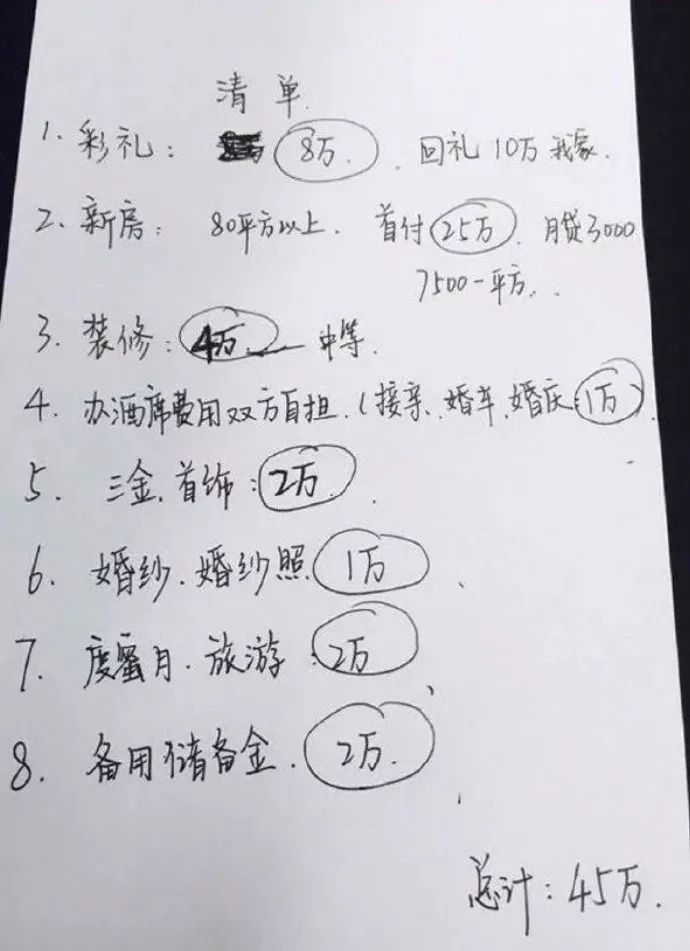 清单
1. 彩礼： 8万. 回礼 10万 我家.
2. 新房： 80平方以上. 首付 25万. 月贷3000
7500一平方.
3. 装修： 4万 中等.
4. 办酒席费用双方自担.（接亲、婚车、婚庆：1万）
5. 三金、首饰：2万.
6. 婚纱、婚纱照 1万、
7. 度蜜月、旅游：2万、
8. 备用储备金. 2万.
总计：45万.